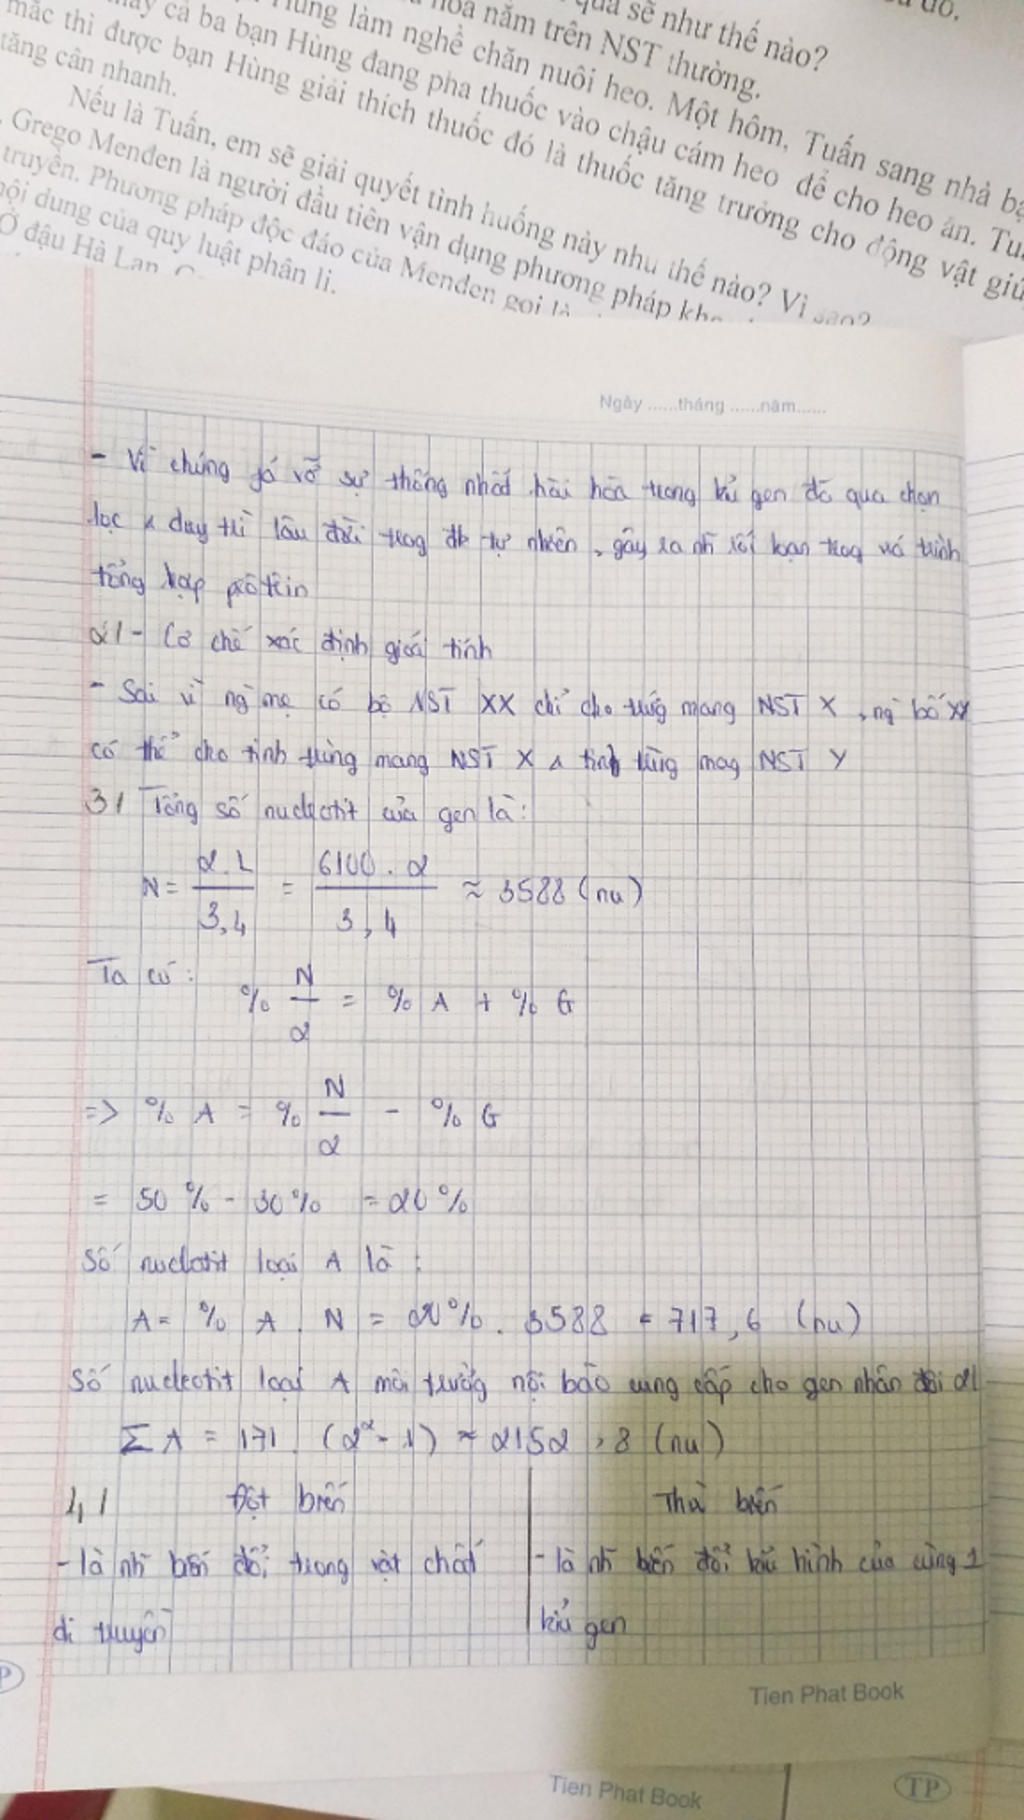 quả sẽ như thế nào?
hoa nằm trên NST thường.
Hùng làm nghề chăn nuôi heo. Một hôm, Tuấn sang nhà bạ
cả ba bạn Hùng đang pha thuốc vào chậu cám heo để cho heo ăn. Tu
mắc thì được bạn Hùng giải thích thuốc đó là thuốc tăng trưởng cho động vật giú
tăng cân nhanh.
Nếu là Tuấn, em sẽ giải quyết tình huống này như thế nào? Vì sao?
Grego Menđen là người đầu tiên vận dụng phương pháp
truyền. Phương pháp độc đáo của Menđen gọi là
nội dung của quy luật phân li.
Ở đậu Hà Lan
Ngày ......tháng ......năm......
- Vì chúng phá vỡ sự thống nhất hài hòa trong kiểu gen đã qua chọn
lọc & duy trì lâu đời trog đk tự nhiên, gây ra nh~ rối loạn trog quá trình
tổng hợp prôtêin
2/- Cơ chế xác định giới tính
- Sai vì ng` mẹ có bộ NST XX chỉ cho trứng mang NST X, ng` bố XY
có thể cho tinh trùng mang NST X & tinh trùng mag NST Y
3/ Tổng số nucleotit của gen là:
N = 2.L / 3,4 = 6100 . 2 / 3,4 ≈ 3588 (nu)
Ta có:
% N/2 = % A + % G
=> % A = % N/2 - % G
= 50 % - 30 % = 20 %
Số nucleotit loại A là :
A = % A . N = 20 % . 3588 = 717,6 (nu)
Số nucleotit loại A môi trường nội bào cung cấp cho gen nhân đôi 2l
Σ A = 171 . (2² - 1) ≈ 2152,8 (nu)
4/ Đột biến Thường biến
- là nh~ biến đổi trong vật chất - là nh~ biến đổi kiểu hình của cùng 1
di truyền kiểu gen
Tien Phat Book
Tien Phat Book TP